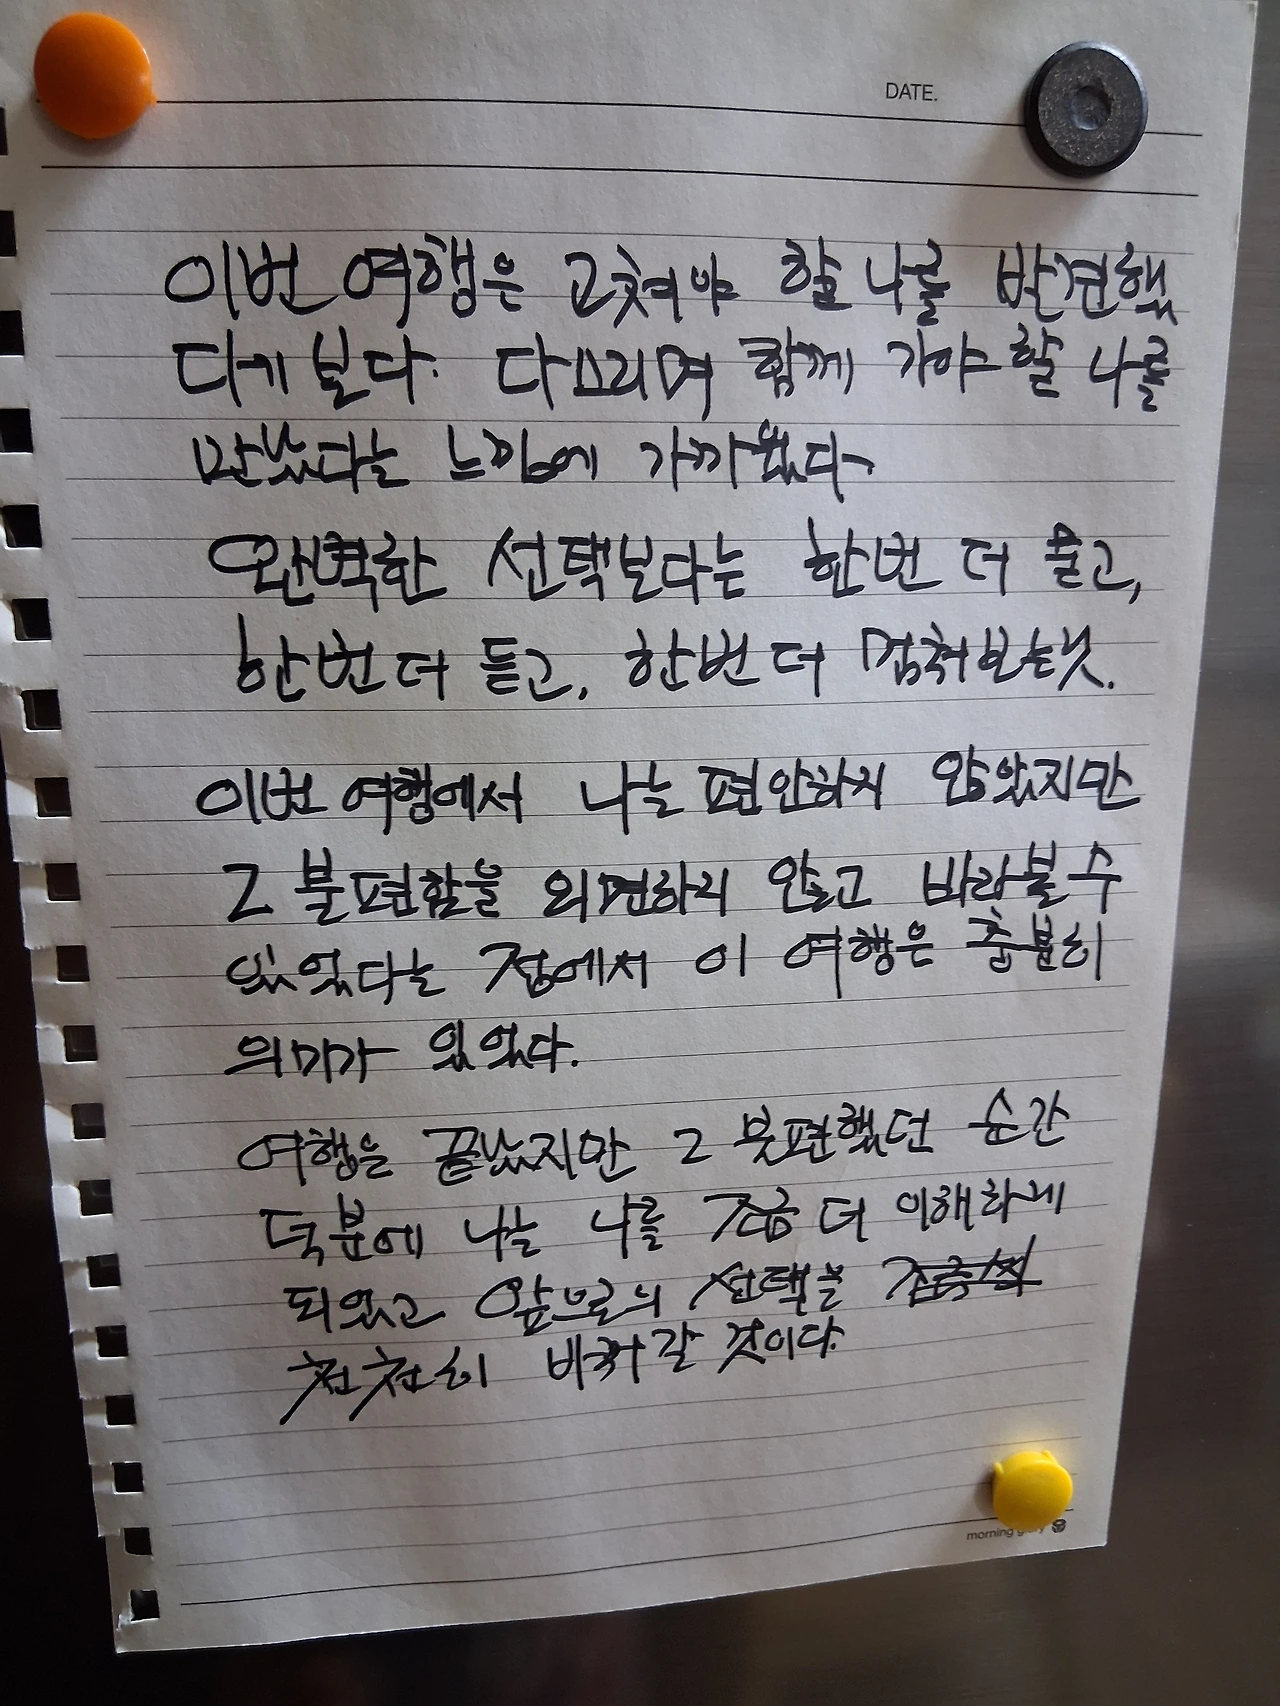 DATE.
이번 여행은 고쳐야 할 나를 발견했
다기 보다. 다스리며 함께 가야 할 나를
만났다는 느낌에 가까웠다
완벽한 선택보다는 한번 더 묻고,
한번 더 듣고, 한번 더 멈춰보는것.
이번 여행에서 나는 편안하지 않았지만
그 불편함을 외면하지 않고 바라볼 수
있었다는 점에서 이 여행은 충분히
의미가 있었다.
여행은 끝났지만 그 불편했던 순간
덕분에 나는 나를 조금 더 이해하게
되었고 앞으로의 선택을 조금씩
천천히 바꿔갈 것이다.
morning glory